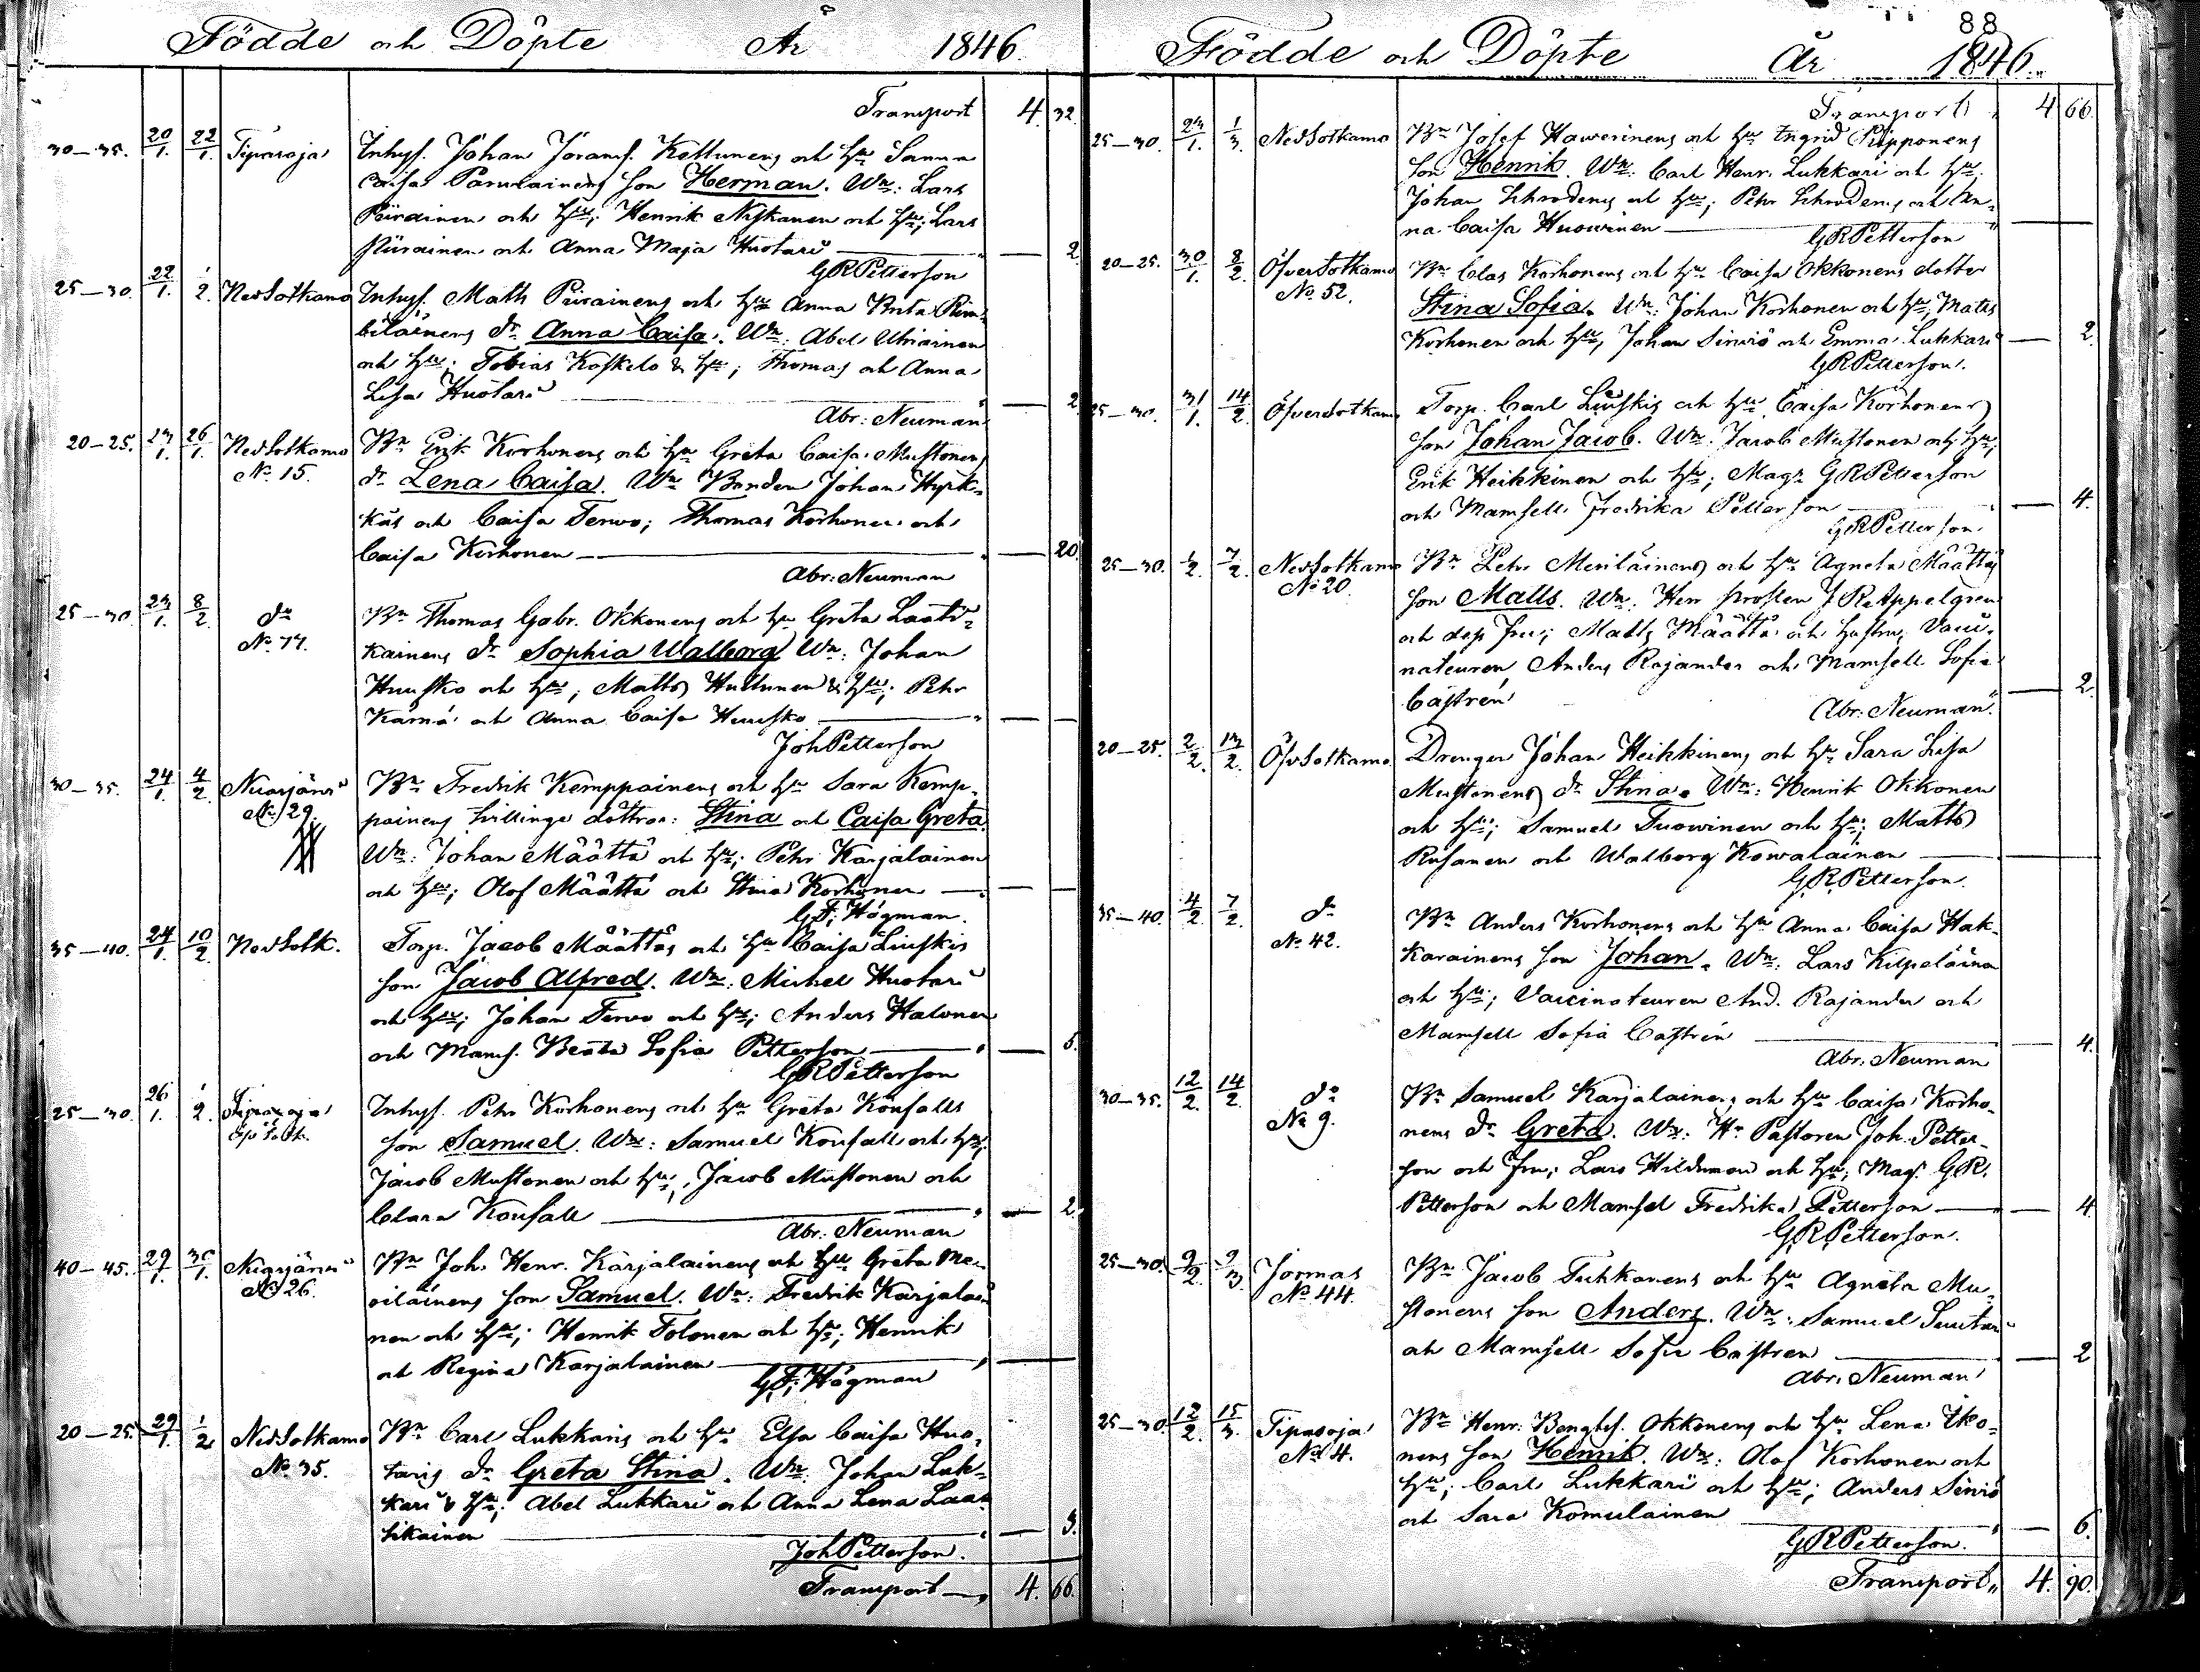 Födde och Döpte År 1846.
Transport 4. 32.
30–35. 20/1. 22/1. Tipasoja Inhys. Johan Joransf. Kettunens och hu Sanna
Caisa Parviainens son Herman. Wn: Lars
Piirainen och hu; Henrik Niskanen och hu; Lars
Piirainen och Anna Maja Huotari — 2.
GRPetterson
25–30. 22/1. 1/2. NedSotkamo Inhys. Math Piirainens och hu Anna Brita Pim-
biläinens dr Anna Caisa. Wn: Abel Uhiainen
och hu; Tobias Koskelo & hu; Thomas och Anna
Lisa Huotari — 2
Abr: Neuman
20–25. 23/1. 26/1. NedSotkamo Bn Erik Korhonens och hu Greta Caisa Mustonens
No 15. dr Lena Caisa. Wn Bonden Johan Hyrk-
käs och Caisa Terwo; Thomas Korhonen och
Caisa Korhonen — 20.
Abr: Neuman
25–30. 23/1. 8/2. do Bn Thomas Gabr. Okkonens och hu Greta Laati-
No 77. kainens dr Sophia Walborg. Wn: Johan
Huusko och hu; Matts Huttunen & hu; Pehr
Kärnä och Anna Caisa Huusko —
JohPetterson
30–35. 24/1. 4/2. Nuasjärvi Bn Fredrik Kemppainens och hu Sara Kemp-
No 29. painens tvillinge döttrar: Stina och Caisa Greta.
Wn: Johan Määttä och hu; Pehr Karjalainen
och hu; Olof Määttä och Stina Korhonen —
G.F. Högman.
35–40. 24/1. 10/2. NedSotk. Torp. Jacob Määttäs och hu Caisa Liuskis
son Jacob Alfred. Wn: Michel Huotari
och hu; Johan Terwo och hu; Anders Halonen
och Mams. Beata Sofia Petterson — 5.
GRPetterson
25–30. 26/1. 1/2. Tipasoja Inhys. Pehr Korhonens och hu Greta Konfalls
son Samuel. Wn: Samuel Konfall och hu;
Jacob Mustonen och hu; Jacob Mustonen och
Clara Konfall — 2.
Abr: Neuman
40–45. 27/1. 31/1. Nuasjärvi Bn Joh. Henr. Karjalainens och hu Greta Me-
No 26. riläinens son Samuel. Wn: Fredrik Karjalai-
nen och hu; Henrik Tolonen och hu; Henrik
och Regina Karjalainen —
G.F. Högman
20–25. 29/1. 1/2 NedSotkamo Bn Carl Lukkaris och hu Elsa Caisa Huo-
No 35. taris dr Greta Stina. Wn: Johan Luk-
kari & hu; Abel Lukkari och Anna Lena Laa-
tikainen — 3.
JohPetterson.
Transport — 4. 66.
88
Födde och Döpte År 1846.
Transport 4 66.
25–30. 23/1. 1/3. NedSotkamo Bn Josef Hawerinens och hu Ingrid Piipponens
son Henrik. Wn: Carl Henr. Lukkari och hu;
Johan Schroderus och hu; Pehr Schroderus och An-
na Caisa Huowinen —
GRPetterson
20–25. 30/1. 8/2. ÖfverSotkamo Bn Clas Korhonens och hu Caisa Okkonens dotter
No 52. Stina Sofia. Wn: Johan Korhonen och hu; Mats
Korhonen och hu; Johan Sirviö och Emma Lukkari — 2.
GRPetterson.
25–30. 31/1. 14/2. ÖfverSotkamo Torp. Carl Liuskis och hu Caisa Korhonens
son Johan Jacob. Wn: Jacob Mustonen och hu;
Erik Heikkinen och hu; Magr GRPetterson
och Mamsell Fredrika Petterson — 4.
GRPetterson.
25–30. 1/2. 7/2. NedSotkamo Bn Pehr Meriläinens och hu Agneta Määttäs
No 20. son Matts. Wn: Herr Prosten J R Appelgren
och dess fru; Matts Määttä och hustru; Vacci-
nateuren Anders Rajander och Mamsell Sofia
Castrén — 2.
Abr: Neuman.
20–25. 2/2. 13/2. ÖfvSotkamo. Drengen Johan Heikkinens och hu Sara Lisa
Mustonens dr Stina. Wn: Henrik Okkonen
och hu; Samuel Tuowinen och hu; Matts
Rusanen och Walborg Kowalainen —
GRPetterson.
35–40. 4/2. 7/2. do Bn Anders Korhonens och hu Anna Caisa Hak-
No 42. karainens son Johan. Wn: Lars Kilpeläinen
och hu; Vaccinateuren And. Rajander och
Mamsell Sofia Castrén — 4.
Abr. Neuman
30–35. 12/2. 14/2. do Bn Samuel Karjalainens och hu Caisa Korho-
No 9. nens dr Greta. Wn: Hr Pastoren Joh. Petter-
son och fru; Lars Hildunen och hu; Magr GR.
Petterson och Mamsel Fredrika Petterson — 4.
GRPetterson.
25–30. 9/2. 9/3. Jormas Bn Jacob Tuhkanens och hu Agneta Mu-
No 44. stonens son Anders. Wn: Samuel Suutari
och Mamsell Sofie Castren — 2
Abr. Neuman
25–30. 12/2. 15/3. Tipasoja Bn Henr: Bengtsf. Okkonens och hu Lena Iko-
No 4. nens son Henrik. Wn: Olof Korhonen och
hu; Carl Lukkari och hu; Anders Sirviö
och Sara Komulainen — 6.
GRPetterson.
Transport 4. 90.